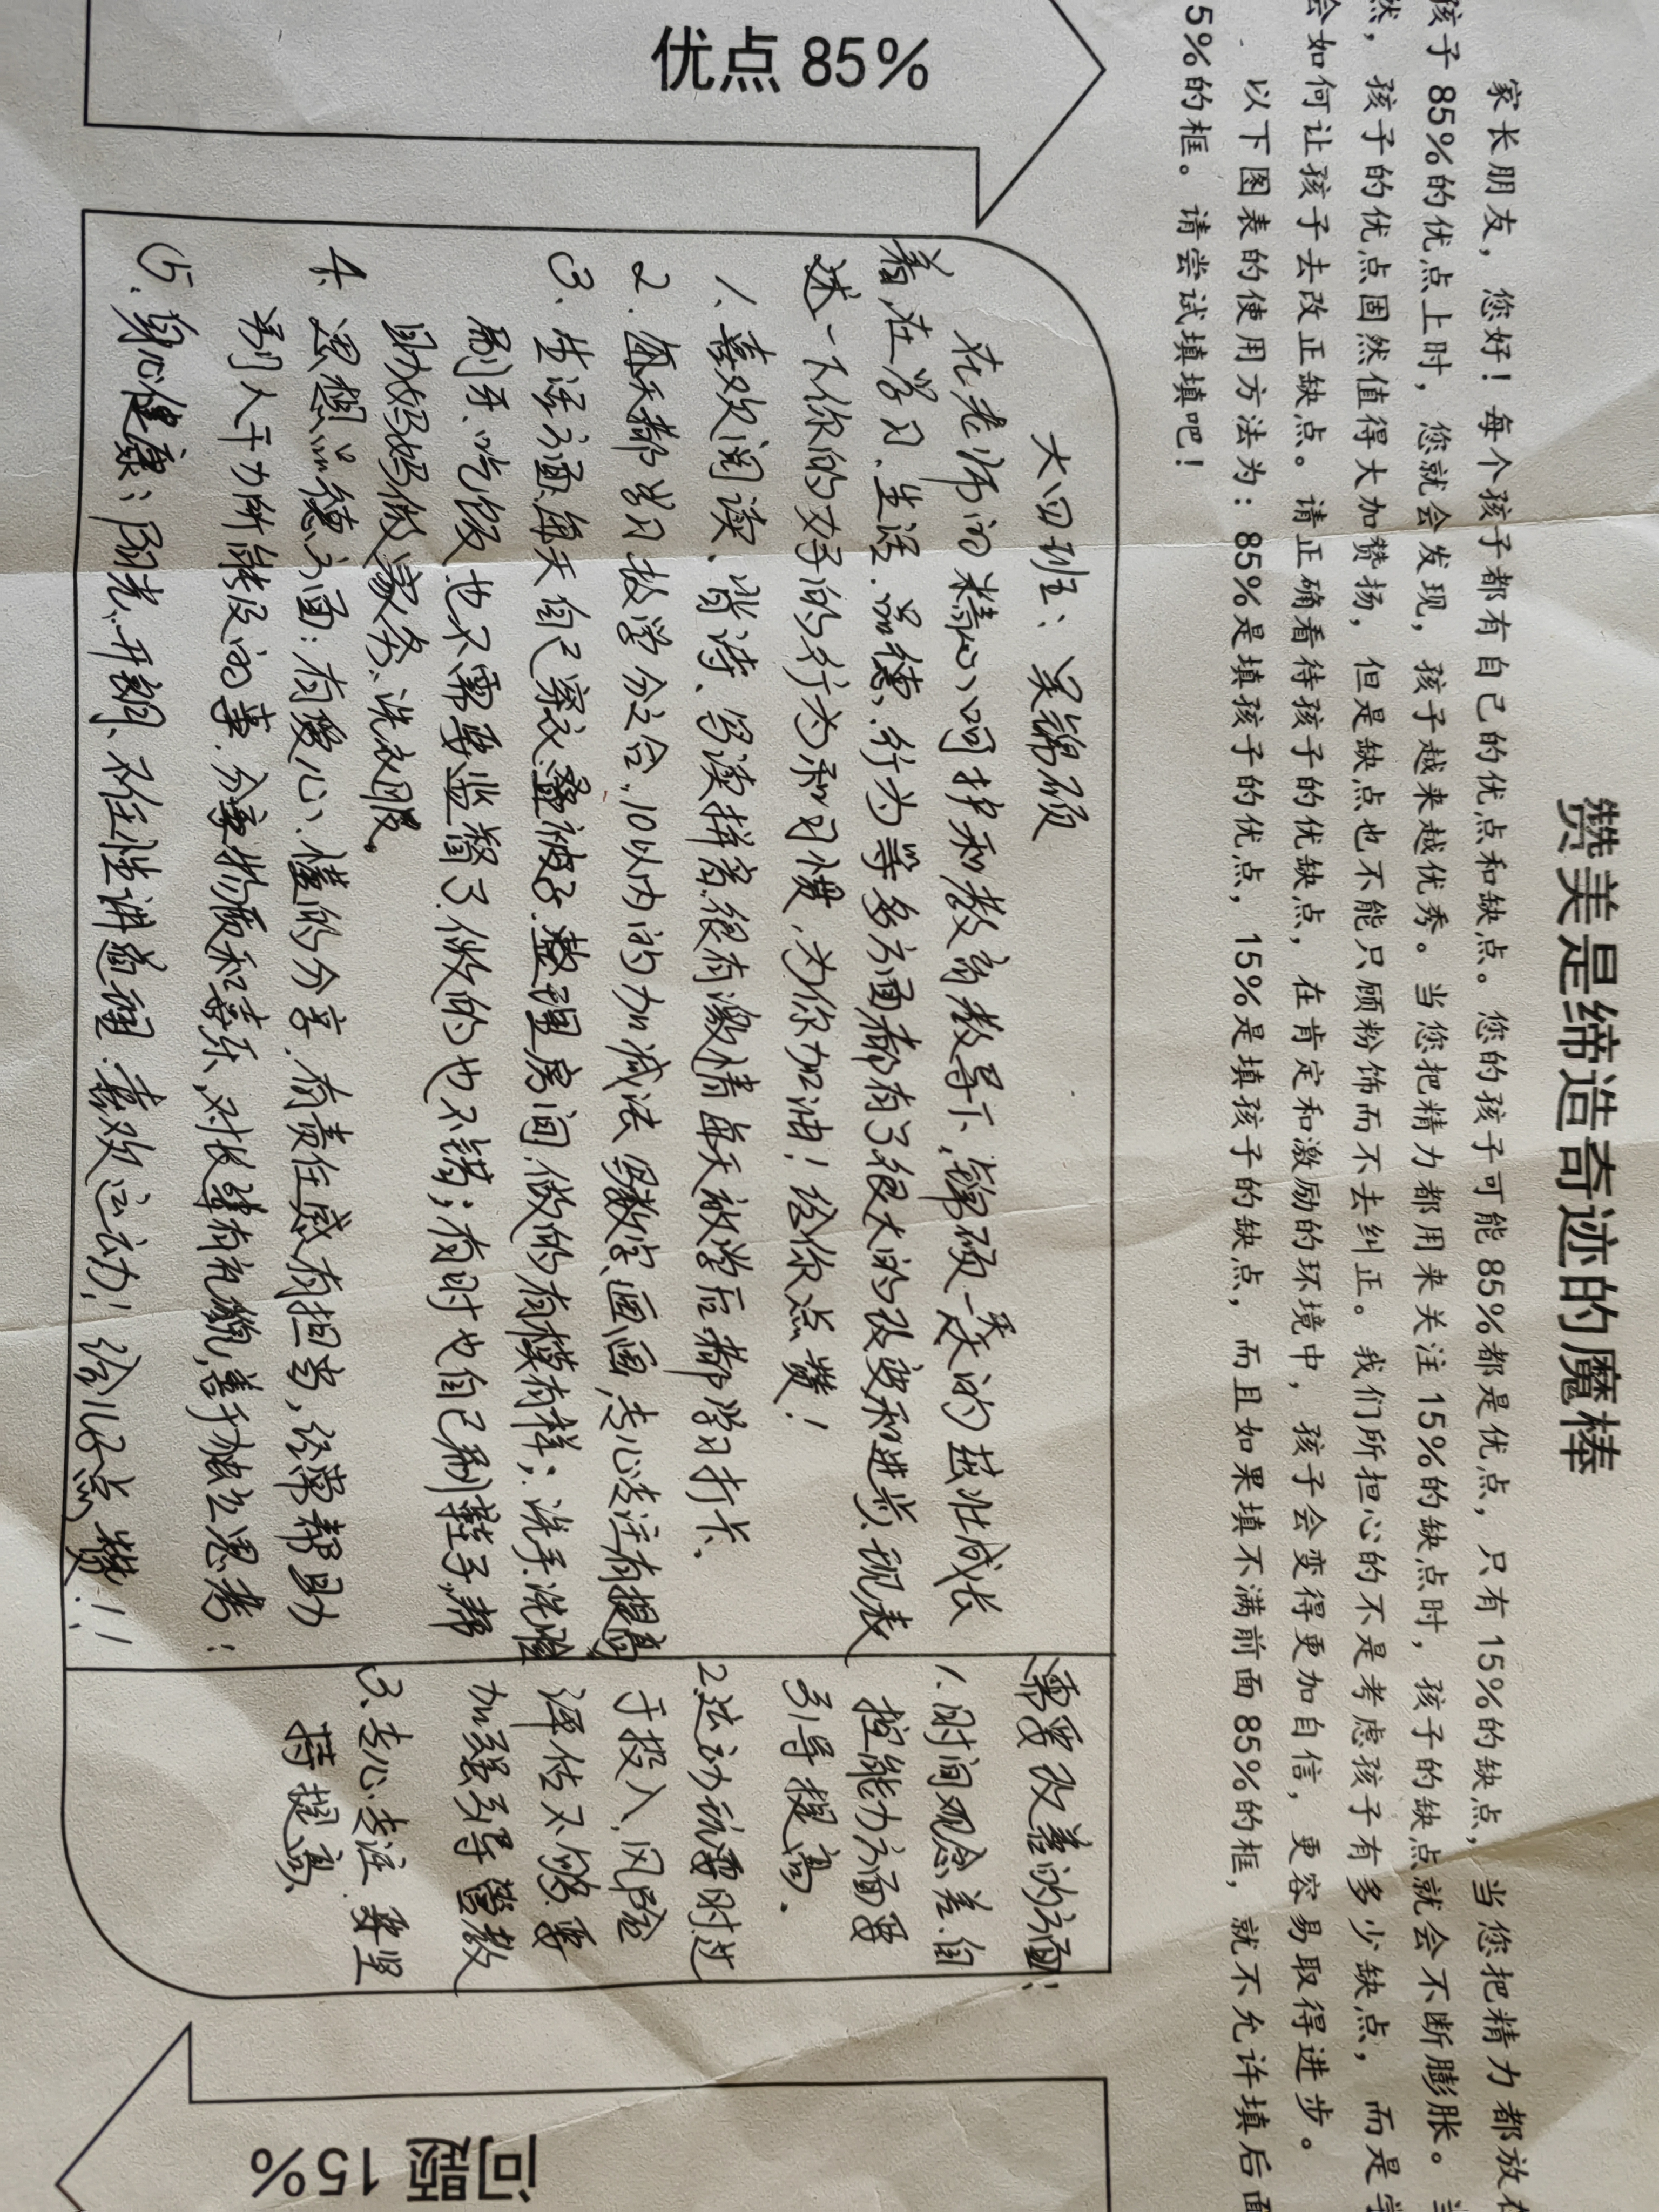 赞美是缔造奇迹的魔棒
家长朋友，您好！每个孩子都有自己的优点和缺点。您的孩子可能 85%都是优点，只有 15%的缺点，当您把精力都放在
孩子 85%的优点上时，您就会发现，孩子越来越优秀。当您把精力都用来关注 15%的缺点时，孩子的缺点就会不断膨胀。当
然，孩子的优点固然值得大加赞扬，但是缺点也不能只顾粉饰而不去纠正。我们所担心的不是考虑孩子有多少缺点，而是学
会如何让孩子去改正缺点。请正确看待孩子的优缺点，在肯定和激励的环境中，孩子会变得更加自信，更容易取得进步。
以下图表的使用方法为：85%是填孩子的优点，15%是填孩子的缺点，而且如果填不满前面 85%的框，就不允许填后面
5%的框。请尝试填填吧！
优点 85%
大四班：吴锦硕
在老师的精心呵护和教育教导下，锦硕一天天的茁壮成长
着，在学习、生活、品德、行为等多方面都有了很大的改变和进步，现表
述一下你的好的行为和习惯，为你加油！给你点赞！
1、喜欢阅读、背诗、写读拼音很有激情每天放学后都学习打卡.
2.每天都学习数学分合,10以内的加减法写数字、画画,专心专注有提高
3.生活方面,每天自己穿衣叠被子.整理房间.做的有模有样；洗手.洗脸
刷牙、吃饭也不需要监督了.做的也不错；有时也自己刷鞋子,帮
助妈妈做家务、洗衣服。
4.思想品德方面：有爱心、懂的分享.有责任感有担当，经常帮助
别人干力所能及的事.分享物质和喜乐，对长辈有礼貌,善于独立思考；
5.身心健康；阳光、开朗、不任性讲道理.喜欢运动！给儿子点赞！！
需要改善的方面：
1.时间观念差.自
控能力方面要
引导提高.
2.运动玩耍时过
于投入,风险
评估不够.要
加强引导管教
3、专心、专注.要坚
持提高.
问题 15%